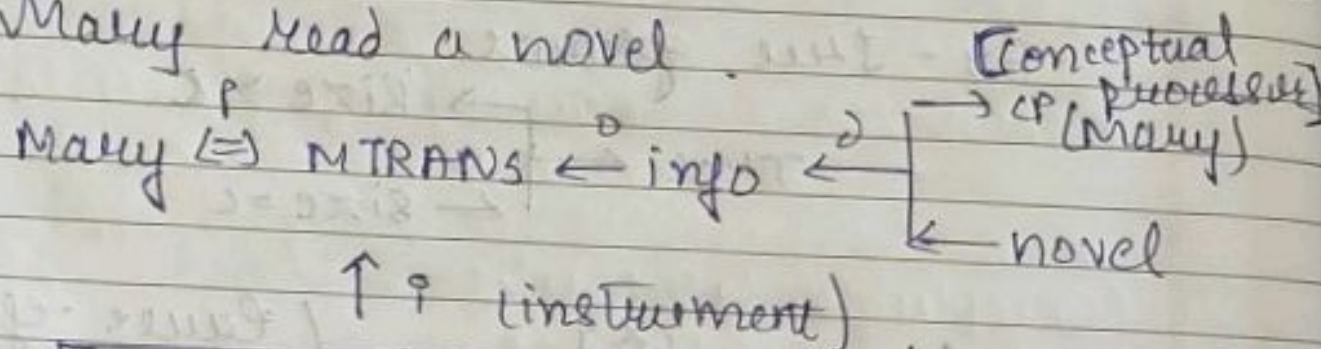 Mary read a novel. [Conceptual
p → CP Processor]
Mary ⇔ MTRANS ←o info ← (Mary)
← novel
↑ i (instrument)